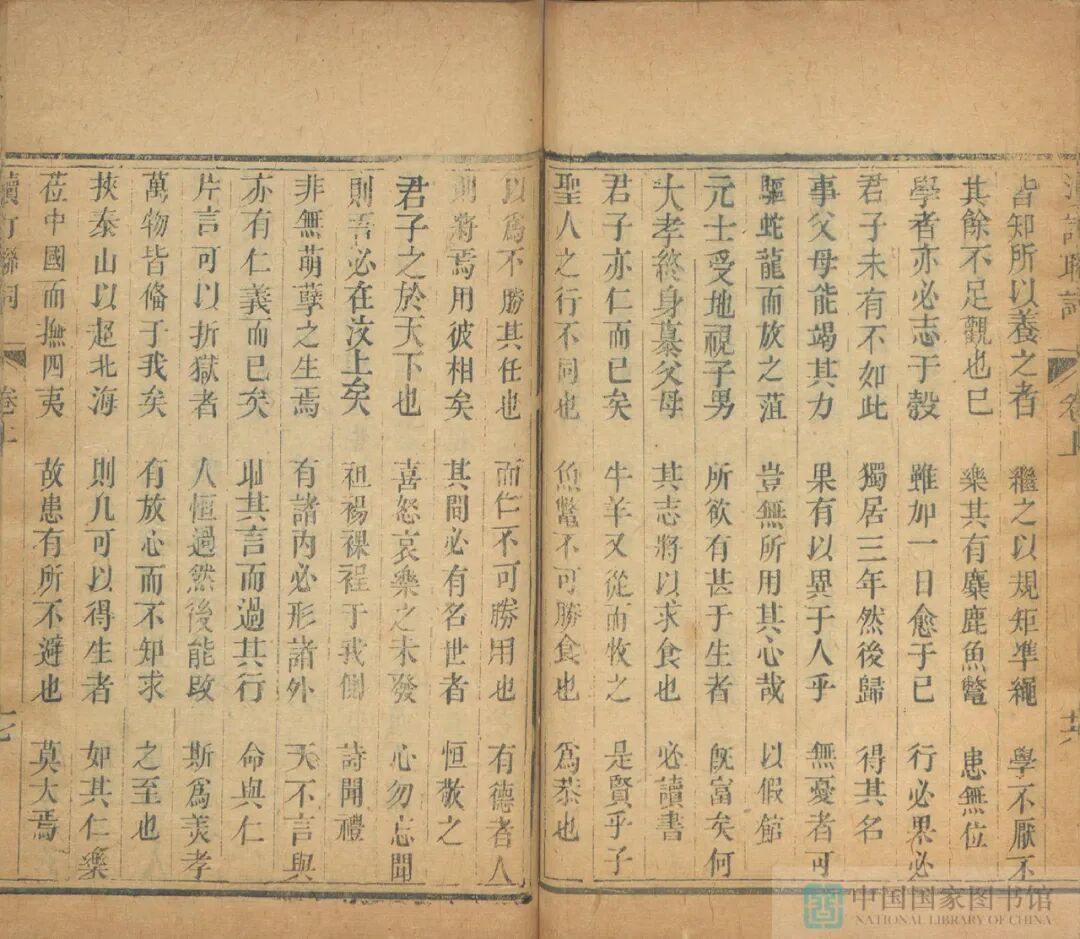 卷上
皆知所以養之者 繼之以規矩準繩 學不厭不
其餘不足觀也巳 樂其有麋鹿魚鼈 患無位
學者亦必志于彀 雖加一日愈于已 行必果必
君子未有不如此 獨居三年然後歸 得其名
事父母能竭其力 果有以異于人乎 無憂者可
驅蛇龍而放之菹 豈無所用其心哉 以假館
元士受地視子男 所欲有甚于生者 旣富矣何
大孝終身慕父母 其志將以求食也 必讀書
君子亦仁而巳矣 牛羊又從而牧之 是賢乎子
聖人之行不同也 魚鼈不可勝食也 爲恭也
以爲不勝其任也 而仁不可勝用也 有德者人
則將焉用彼相矣 其間必有名世者 恒敬之
君子之於天下也 喜怒哀樂之未發 心勿忘聞
則吾必在汶上矣 袒裼裸裎于我側 詩聞禮
非無萌孽之生焉 有諸內必形諸外 天不言與
亦有仁義而巳矣 恥其言而過其行 命與仁
片言可以折獄者 人恒過然後能改 斯爲美孝
萬物皆備于我矣 有放心而不知求 之至也
挾泰山以超北海 則凡可以得生者 如其仁樂
莅中國而撫四夷 故患有所不避也 莫大焉
卷上
中国国家图书馆
NATIONAL LIBRARY OF CHINA